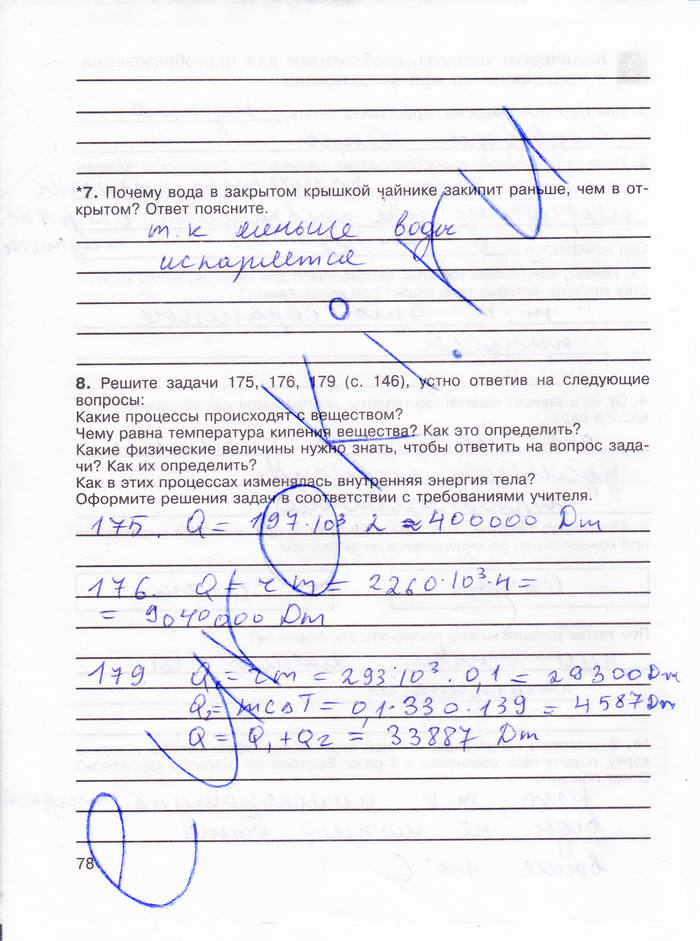 *7. Почему вода в закрытом крышкой чайнике закипит раньше, чем в от-
крытом? Ответ поясните.
т.к меньше воды
испаряется
8. Решите задачи 175, 176, 179 (с. 146), устно ответив на следующие
вопросы:
Какие процессы происходят с веществом?
Чему равна температура кипения вещества? Как это определить?
Какие физические величины нужно знать, чтобы ответить на вопрос зада-
чи? Как их определить?
Как в этих процессах изменялась внутренняя энергия тела?
Оформите решения задач в соответствии с требованиями учителя.
175. Q = 197·10³·2 ≈ 400000 Dm
176. Q = r m = 2260·10³·4 =
= 9040000 Dm
179. Q₁ = r m = 293·10³·0,1 = 29300 Dm
Q₂ = mc△T = 0,1·330·139 = 4587 Dm
Q = Q₁ + Q₂ = 33887 Dm
78